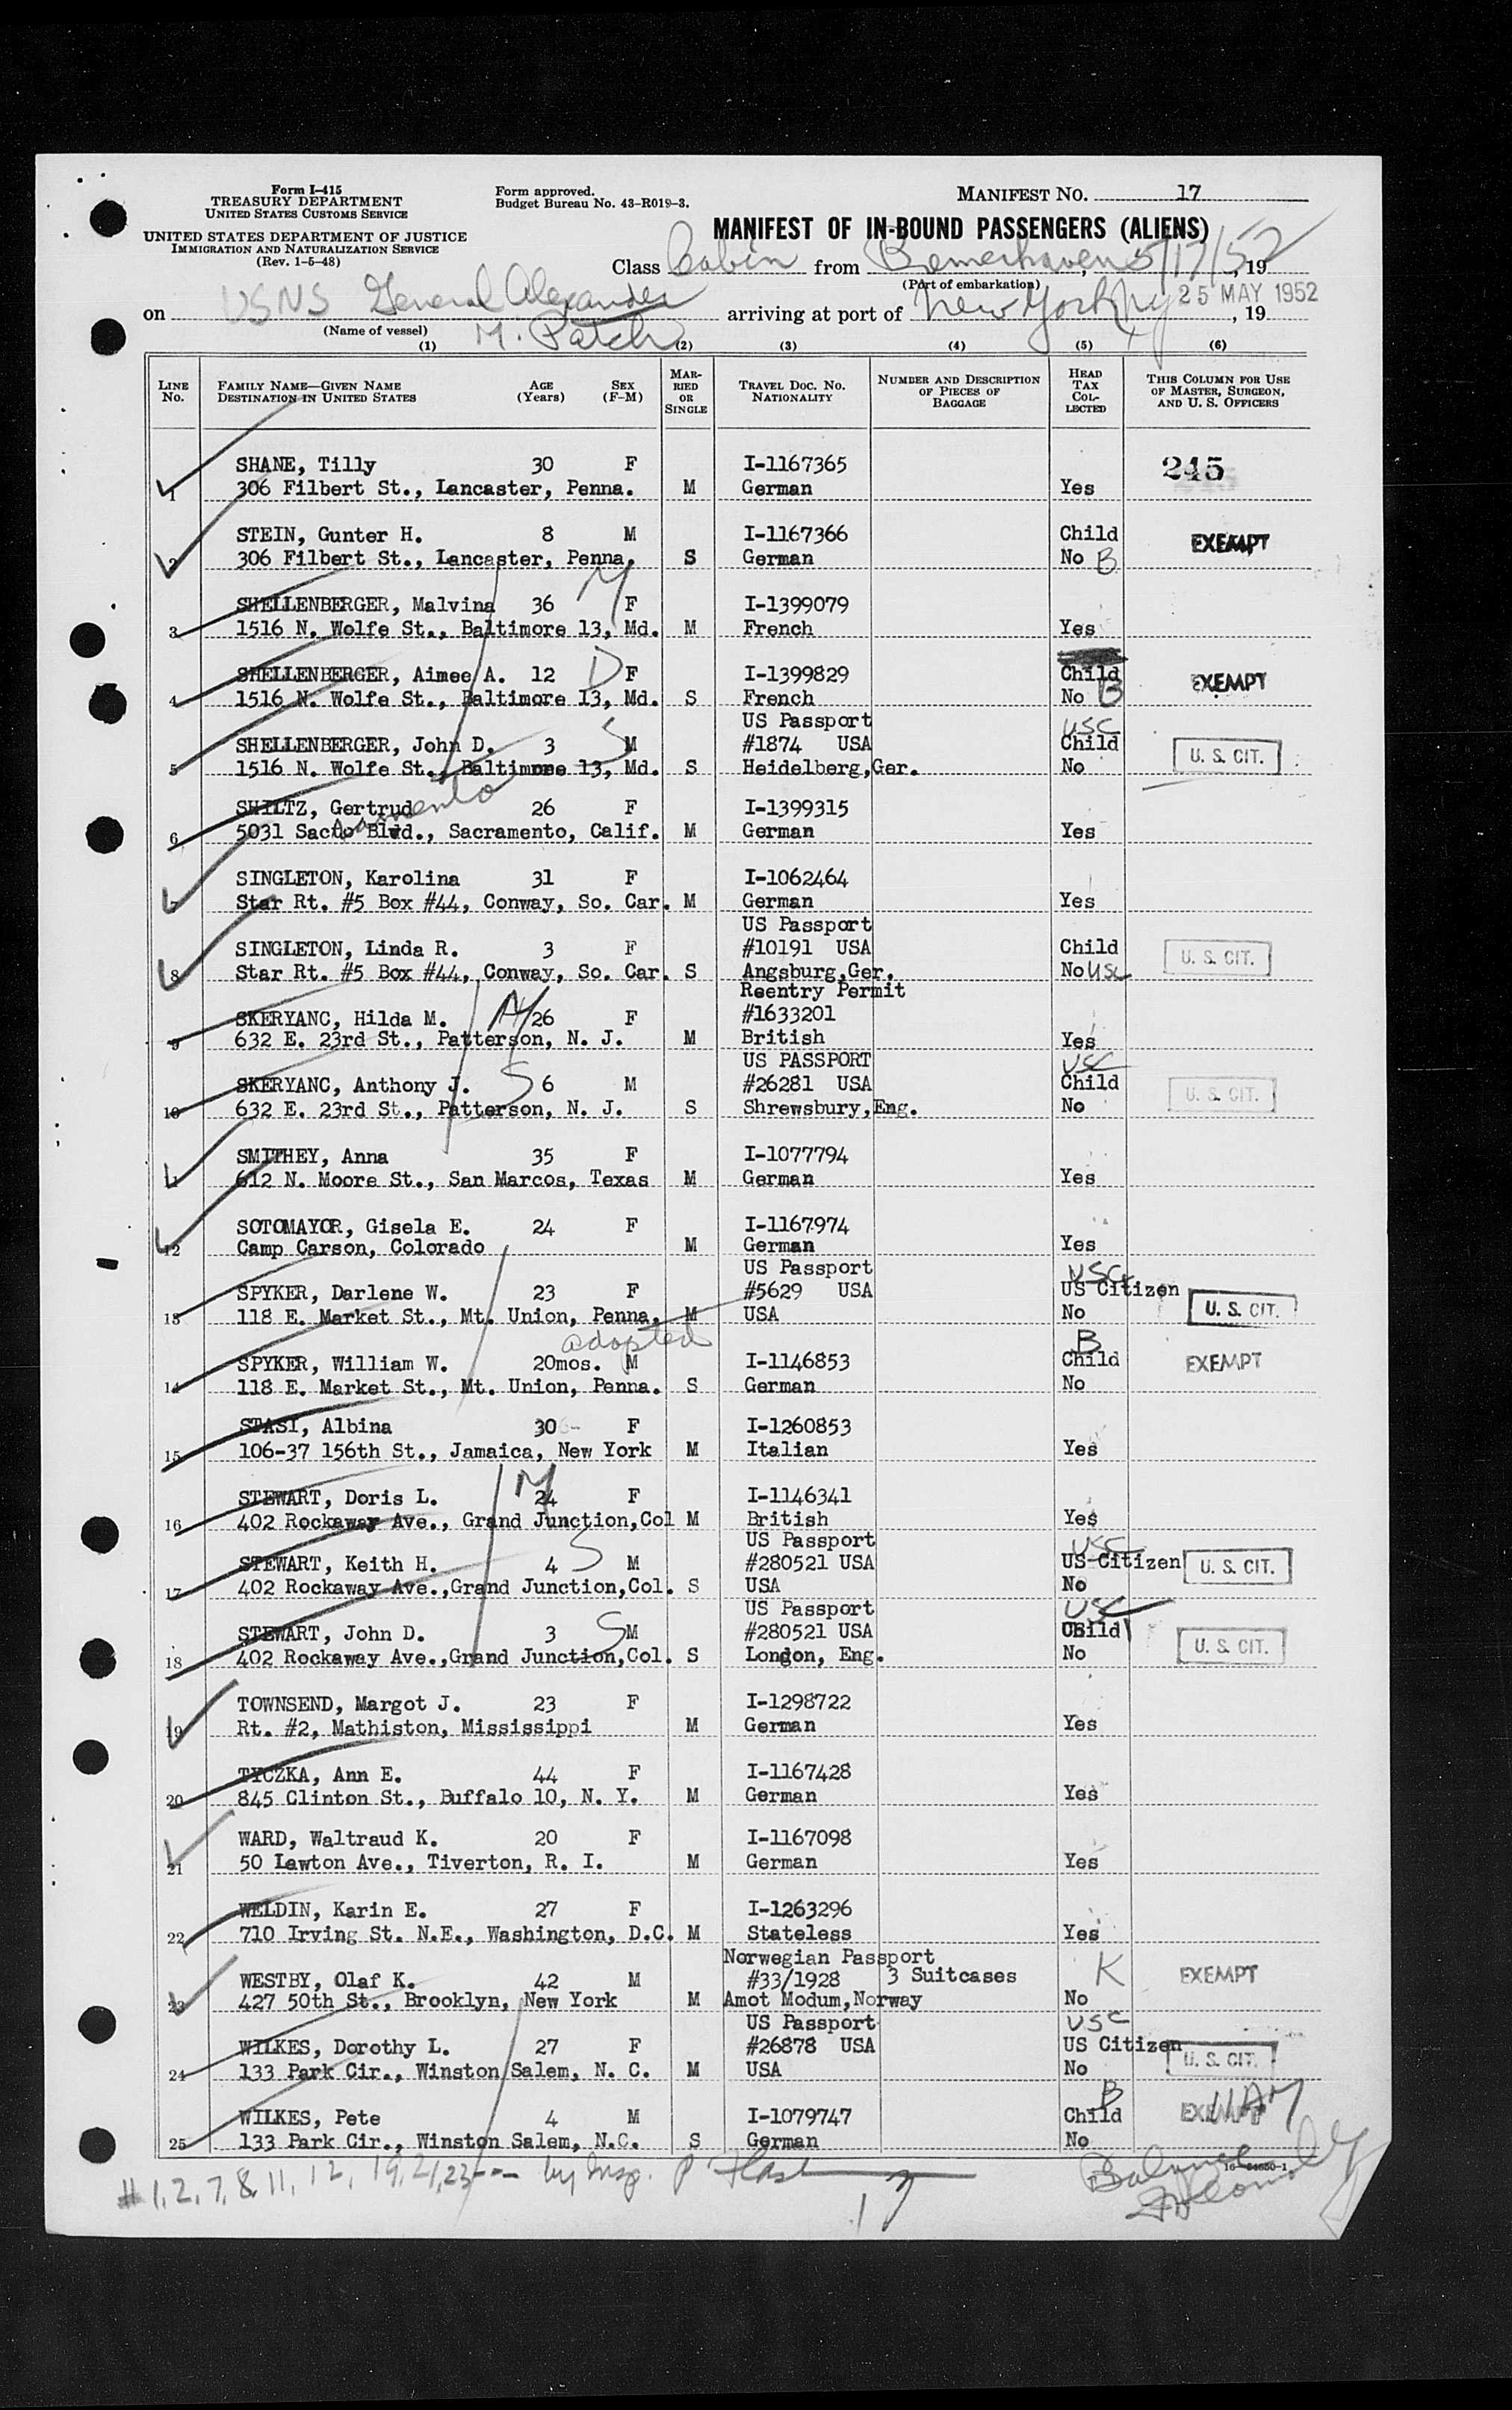 Form I-415
TREASURY DEPARTMENT
UNITED STATES CUSTOMS SERVICE
UNITED STATES DEPARTMENT OF JUSTICE
IMMIGRATION AND NATURALIZATION SERVICE
(Rev. 1-5-48)
Form approved.
Budget Bureau No. 43-R019-3.
MANIFEST NO. 17
MANIFEST OF IN-BOUND PASSENGERS (ALIENS)
Class Cabin from Bremerhaven, 5/17/52, 19
(Port of embarkation)
on USNS General Alexander M. Patch arriving at port of New York NY 25 MAY 1952, 19
(Name of vessel)
(1) (2) (3) (4) (5) (6)
LINE No. FAMILY NAME—GIVEN NAME DESTINATION IN UNITED STATES AGE (Years) SEX (F-M) MARRIED OR SINGLE TRAVEL DOC. NO. NATIONALITY NUMBER AND DESCRIPTION OF PIECES OF BAGGAGE HEAD TAX COLLECTED THIS COLUMN FOR USE OF MASTER, SURGEON, AND U. S. OFFICERS
SHANE, Tilly 30 F I-1167365 245
1 306 Filbert St., Lancaster, Penna. M German Yes
STEIN, Gunter H. 8 M I-1167366 Child EXEMPT
2 306 Filbert St., Lancaster, Penna. S German No B
SHELLENBERGER, Malvina 36 M F I-1399079
3 1516 N. Wolfe St., Baltimore 13, Md. M French Yes
SHELLENBERGER, Aimee A. 12 D F I-1399829 Child EXEMPT
4 1516 N. Wolfe St., Baltimore 13, Md. S French No B
US Passport USC
SHELLENBERGER, John D. 3 S M #1874 USA Child U. S. CIT.
5 1516 N. Wolfe St., Baltimore 13, Md. S Heidelberg,Ger. No
SHILTZ, Gertrud 26 F I-1399315
6 5031 Sacto Blvd., Sacramento, Calif. M German Yes
SINGLETON, Karolina 31 F I-1062464
7 Star Rt. #5 Box #44, Conway, So. Car. M German Yes
US Passport
SINGLETON, Linda R. 3 F #10191 USA Child U. S. CIT.
8 Star Rt. #5 Box #44, Conway, So. Car. S Angsburg,Ger. No USC
Reentry Permit
SKERYANC, Hilda M. M 26 F #1633201
9 632 E. 23rd St., Patterson, N. J. M British Yes
US PASSPORT USC
SKERYANC, Anthony J. S 6 M #26281 USA Child U. S. CIT.
10 632 E. 23rd St., Patterson, N. J. S Shrewsbury,Eng. No
SMITHEY, Anna 35 F I-1077794
11 612 N. Moore St., San Marcos, Texas M German Yes
SOTOMAYOR, Gisela E. 24 F I-1167974
12 Camp Carson, Colorado M German Yes
US Passport USC
SPYKER, Darlene W. 23 F #5629 USA US Citizen
13 118 E. Market St., Mt. Union, Penna. M USA No U. S. CIT.
adopted B
SPYKER, William W. 20mos. M I-1146853 Child EXEMPT
14 118 E. Market St., Mt. Union, Penna. S German No
STASI, Albina 30 F I-1260853
15 106-37 156th St., Jamaica, New York M Italian Yes
STEWART, Doris L. M 24 F I-1146341
16 402 Rockaway Ave., Grand Junction,Col M British Yes
US Passport USC
STEWART, Keith H. 4 S M #280521 USA US Citizen U. S. CIT.
17 402 Rockaway Ave.,Grand Junction,Col. S USA No
US Passport USC
STEWART, John D. 3 S M #280521 USA Child U. S. CIT.
18 402 Rockaway Ave.,Grand Junction,Col. S London, Eng. No
TOWNSEND, Margot J. 23 F I-1298722
19 Rt. #2, Mathiston, Mississippi M German Yes
TYCZKA, Ann E. 44 F I-1167428
20 845 Clinton St., Buffalo 10, N. Y. M German Yes
WARD, Waltraud K. 20 F I-1167098
21 50 Lawton Ave., Tiverton, R. I. M German Yes
WELDIN, Karin E. 27 F I-1263296
22 710 Irving St. N.E., Washington, D.C. M Stateless Yes
Norwegian Passport
WESTBY, Olaf K. 42 M #33/1928 3 Suitcases K EXEMPT
23 427 50th St., Brooklyn, New York M Amot Modum,Norway No
US Passport USC
WILKES, Dorothy L. 27 F #26878 USA US Citizen
24 133 Park Cir., Winston Salem, N. C. M USA No U. S. CIT.
B
WILKES, Pete 4 M I-1079747 Child EXEMPT
25 133 Park Cir., Winston Salem, N.C. S German No
# 1, 2, 7, 8, 11, 12, 19, 21, 23 --- by Insp. P
Balance
17